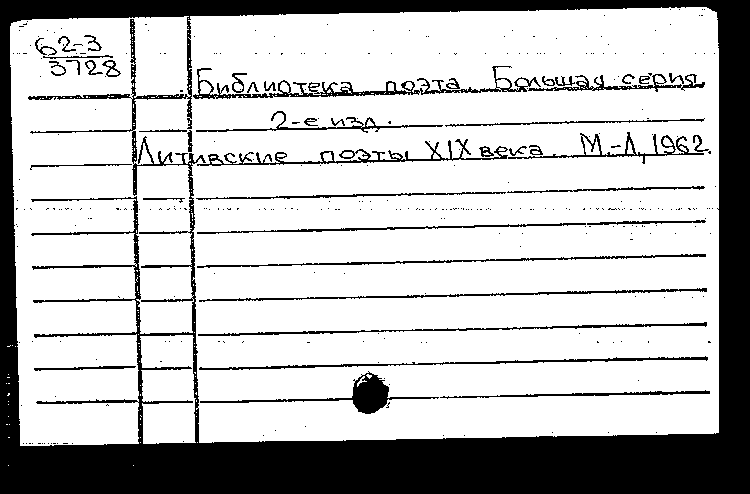 62-3
3728
Библиотека поэта. Большая серия.
2-е изд.
Литивские поэты XIX века. М.-Л, 1962.